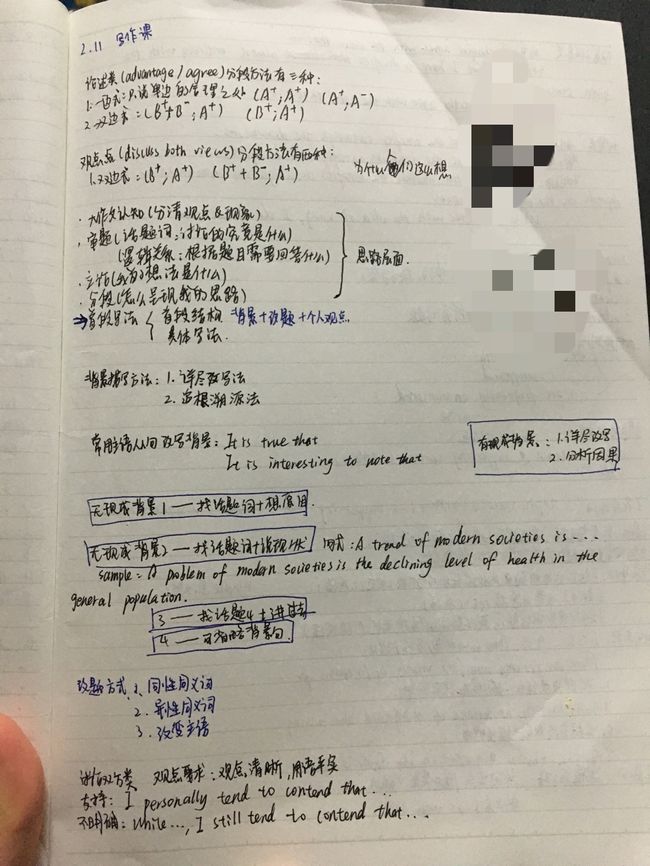 2.11 写作课
论述类(advantage/agree)分段方法有三种:
1.一边式:只说单边的合理之处 (A⁺;A⁺) (A⁺,A⁻)
2.双边式:(B⁺+B⁻;A⁺) (B⁺;A⁺)
观点类(discuss both views)分段方法有两种:
1.双边式:(B⁺;A⁺) (B⁺+B⁻,A⁺)
为什么他们这么想
·大作文认知(分清观点&现象)
·审题(话题词:讨论的究竟是什么)
(逻辑关系:根据题目需要回答什么)
·立论(我的想法是什么)
·分段(怎么呈现我的思路)
思路层面.
⇒首段写法
首段结构 背景+改题+个人观点
具体写法.
背景描写方法:1.详尽改写法
2.追根溯源法
常用主语从句改写背景:It is true that
It is interesting to note that
有现成背景:1.详尽改写
2.分析因果
无现成背景1——找话题词+想原因
无现成背景2——找话题词+说现状 句式:A trend of modern societies is ....
sample:A problem of modern societies is the declining level of health in the
general population.
3——找话题词+讲过去
4——可省略背景句.
改题方式 1、同性同义词
2.异性同义词
3、改变主语
观点要求:观点清晰,用语平实
支持:I personally tend to contend that...
不明确:while..., I still tend to contend that...